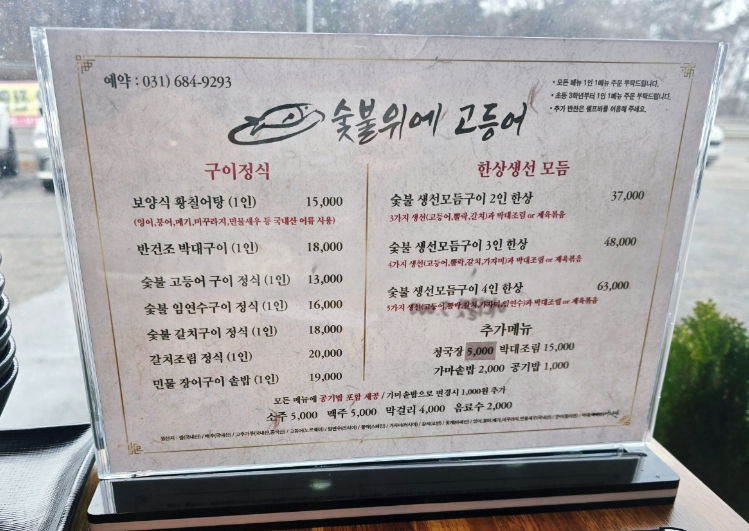 예약 : 031) 684-9293
• 모든 메뉴 1인 1메뉴 주문 부탁드립니다.
• 초등 3학년부터 1인 1메뉴 주문 부탁드립니다.
• 추가 반찬은 셀프바를 이용해 주세요.
숯불위에 고등어
구이정식
보양식 황칠어탕 (1인) 15,000
(잉어,붕어,메기,미꾸라지,민물새우 등 국내산 어류 사용)
반건조 박대구이 (1인) 18,000
숯불 고등어 구이 정식 (1인) 13,000
숯불 임연수구이 정식 (1인) 16,000
숯불 갈치구이 정식 (1인) 18,000
갈치조림 정식 (1인) 20,000
민물 장어구이 솥밥 (1인) 19,000
한상생선 모듬
숯불 생선모듬구이 2인 한상 37,000
3가지 생선(고등어,뽈락,갈치)과 박대조림 or 제육볶음
숯불 생선모듬구이 3인 한상 48,000
4가지 생선(고등어,뽈락,갈치,가자미)과 박대조림 or 제육볶음
숯불 생선모듬구이 4인 한상 63,000
5가지 생선(고등어,뽈락,갈치,가자미,임연수)과 박대조림 or 제육볶음
추가메뉴
청국장 5,000 박대조림 15,000
가마솥밥 2,000 공기밥 1,000
모든 메뉴에 공기밥 포함 제공 / 가마솥밥으로 변경시 1,000원 추가
소주 5,000 맥주 5,000 막걸리 4,000 음료수 2,000